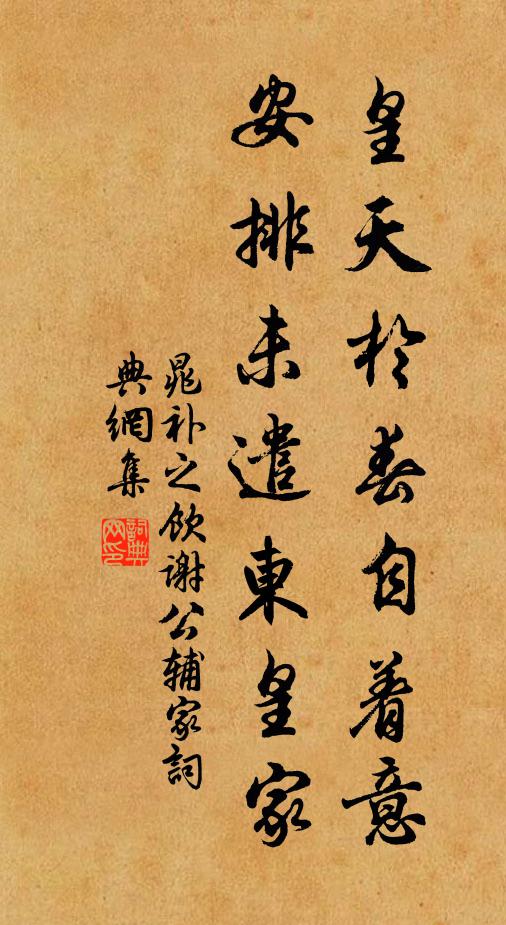 皇天於春自着意
安排未遣東皇家
晁补之飲谢公辅家詞
典網集
詞典网印